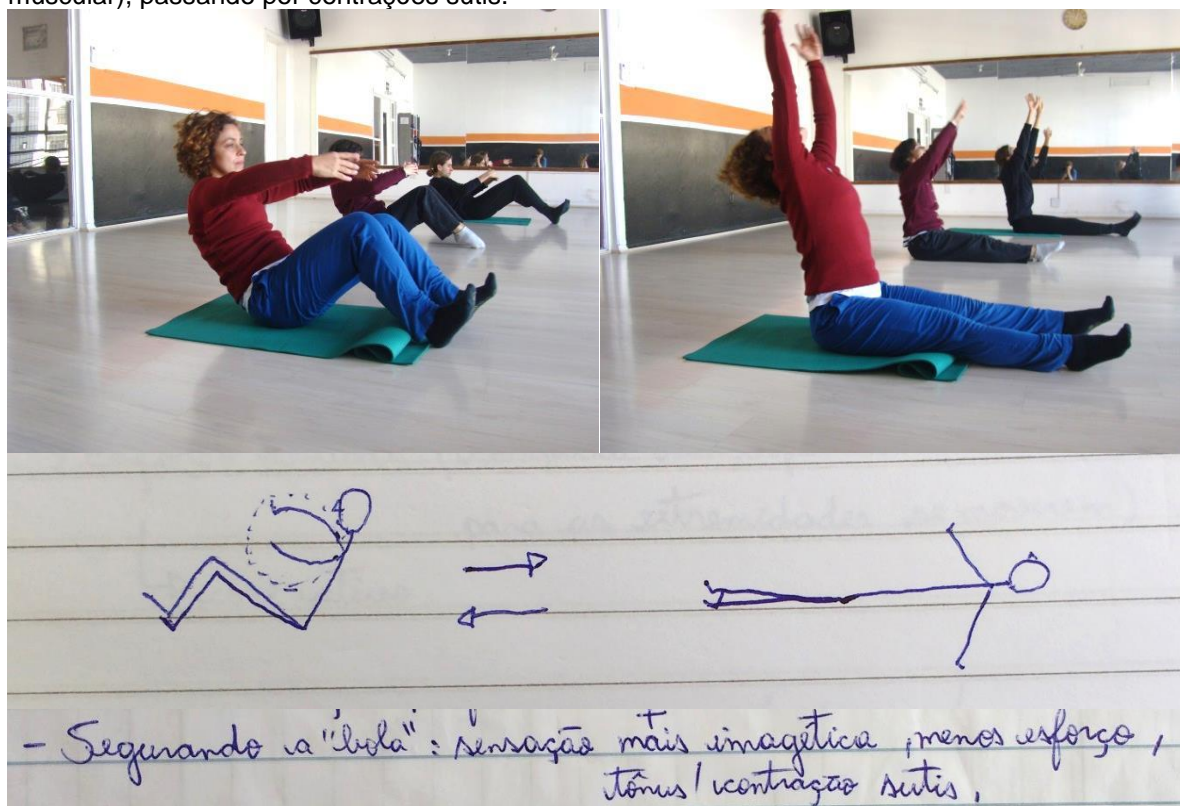 muscular), passando por contrações sutis.
- Segurando a "bola": sensação mais imagética, menos esforço,
tônus/contração sutis,